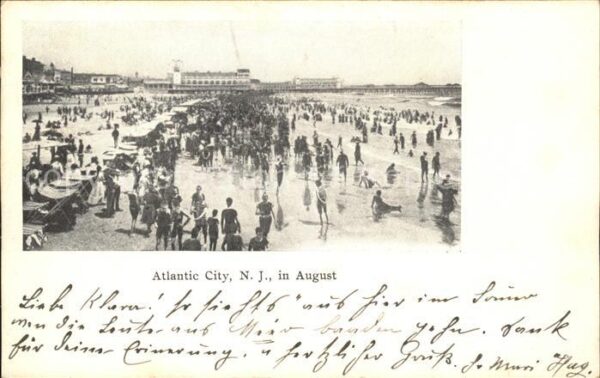 Atlantic City, N. J., in August
Liebe Klara! So sieht's aus hier im Sommer
wen die Leute aus Meer baaden gehn. Dank
für deine Erinnerung, u herzlicher Gruß. Mari